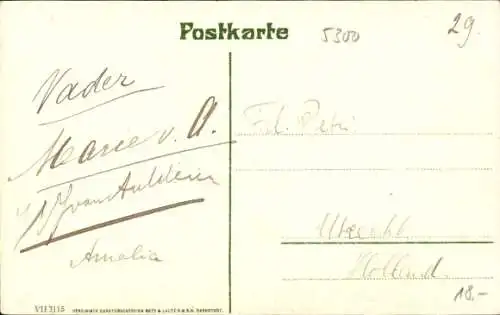 Postkarte
5300
29.
Vader
Marie v. A.
Amalia
Frl. Petri
Utrecht
Holland
18.-